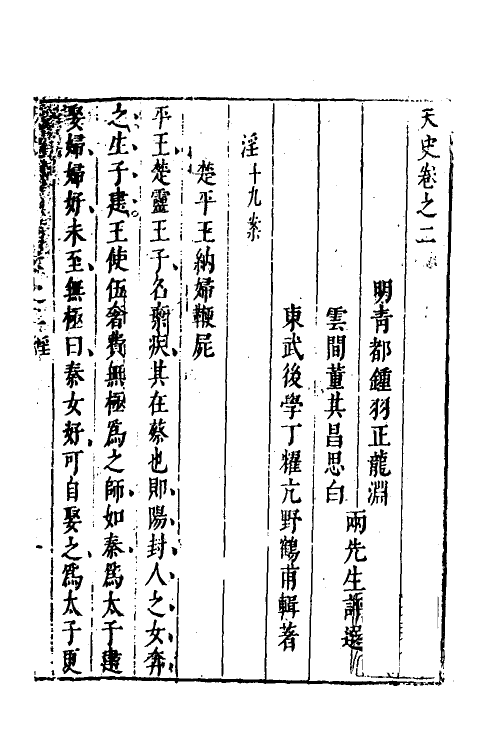 天史卷之二
明青都鍾羽正龍淵
雲間董其昌思白
兩先生評選
東武後學丁耀亢野鶴甫輯著
淫十九案
楚平王納婦鞭屍
平王楚靈王子名棄疾其在蔡也郹陽封人之女奔
之生子建王使伍奢費無極爲之師如秦爲太子建
娶婦婦好未至無極曰秦女好可自娶之爲太子更